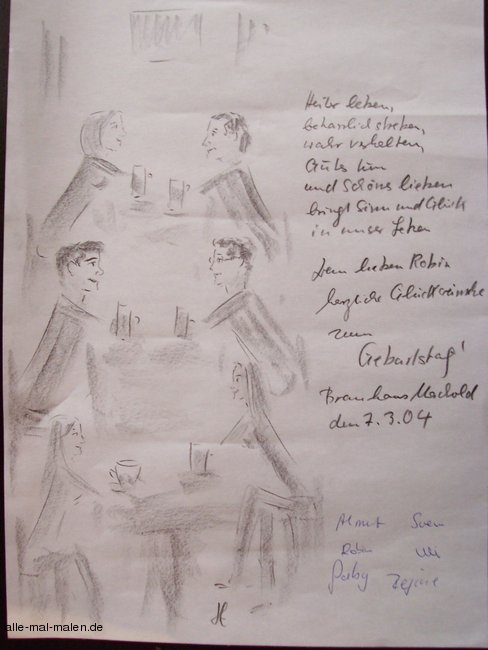 Heiter leben,
beharrlich streben,
wahr verhalten,
Gutes tun
und Schönes lieben
bringt Sinn und Glück
in unser Leben
Dem lieben Robin
herzliche Glückwünsche
zum
Geburtstag!
Brauhaus Machold
den 7.3.04
Almut Sven
Robin Ulli
Gaby
alle-mal-malen.de